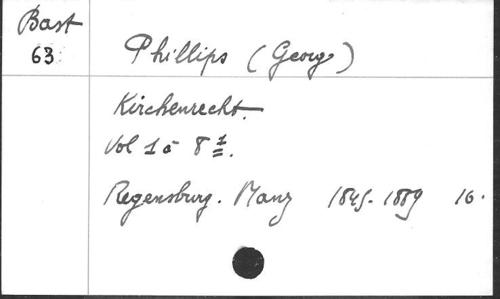 Bast
63
Phillips (Georg)
Kirchenrecht.
Vol 1 à 8 1.
Regensburg. Manz 1845-1889 16.